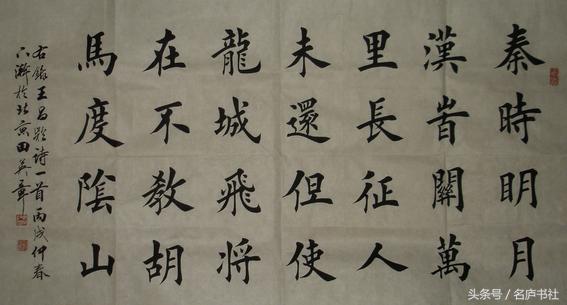 秦時明月
漢旹關萬
里長征人
未還但使
龍城飛将
在不教胡
馬度陰山
右錄王昌齡诗一首丙戌仲春
下澣於北京田英章
头条号／名庐书社